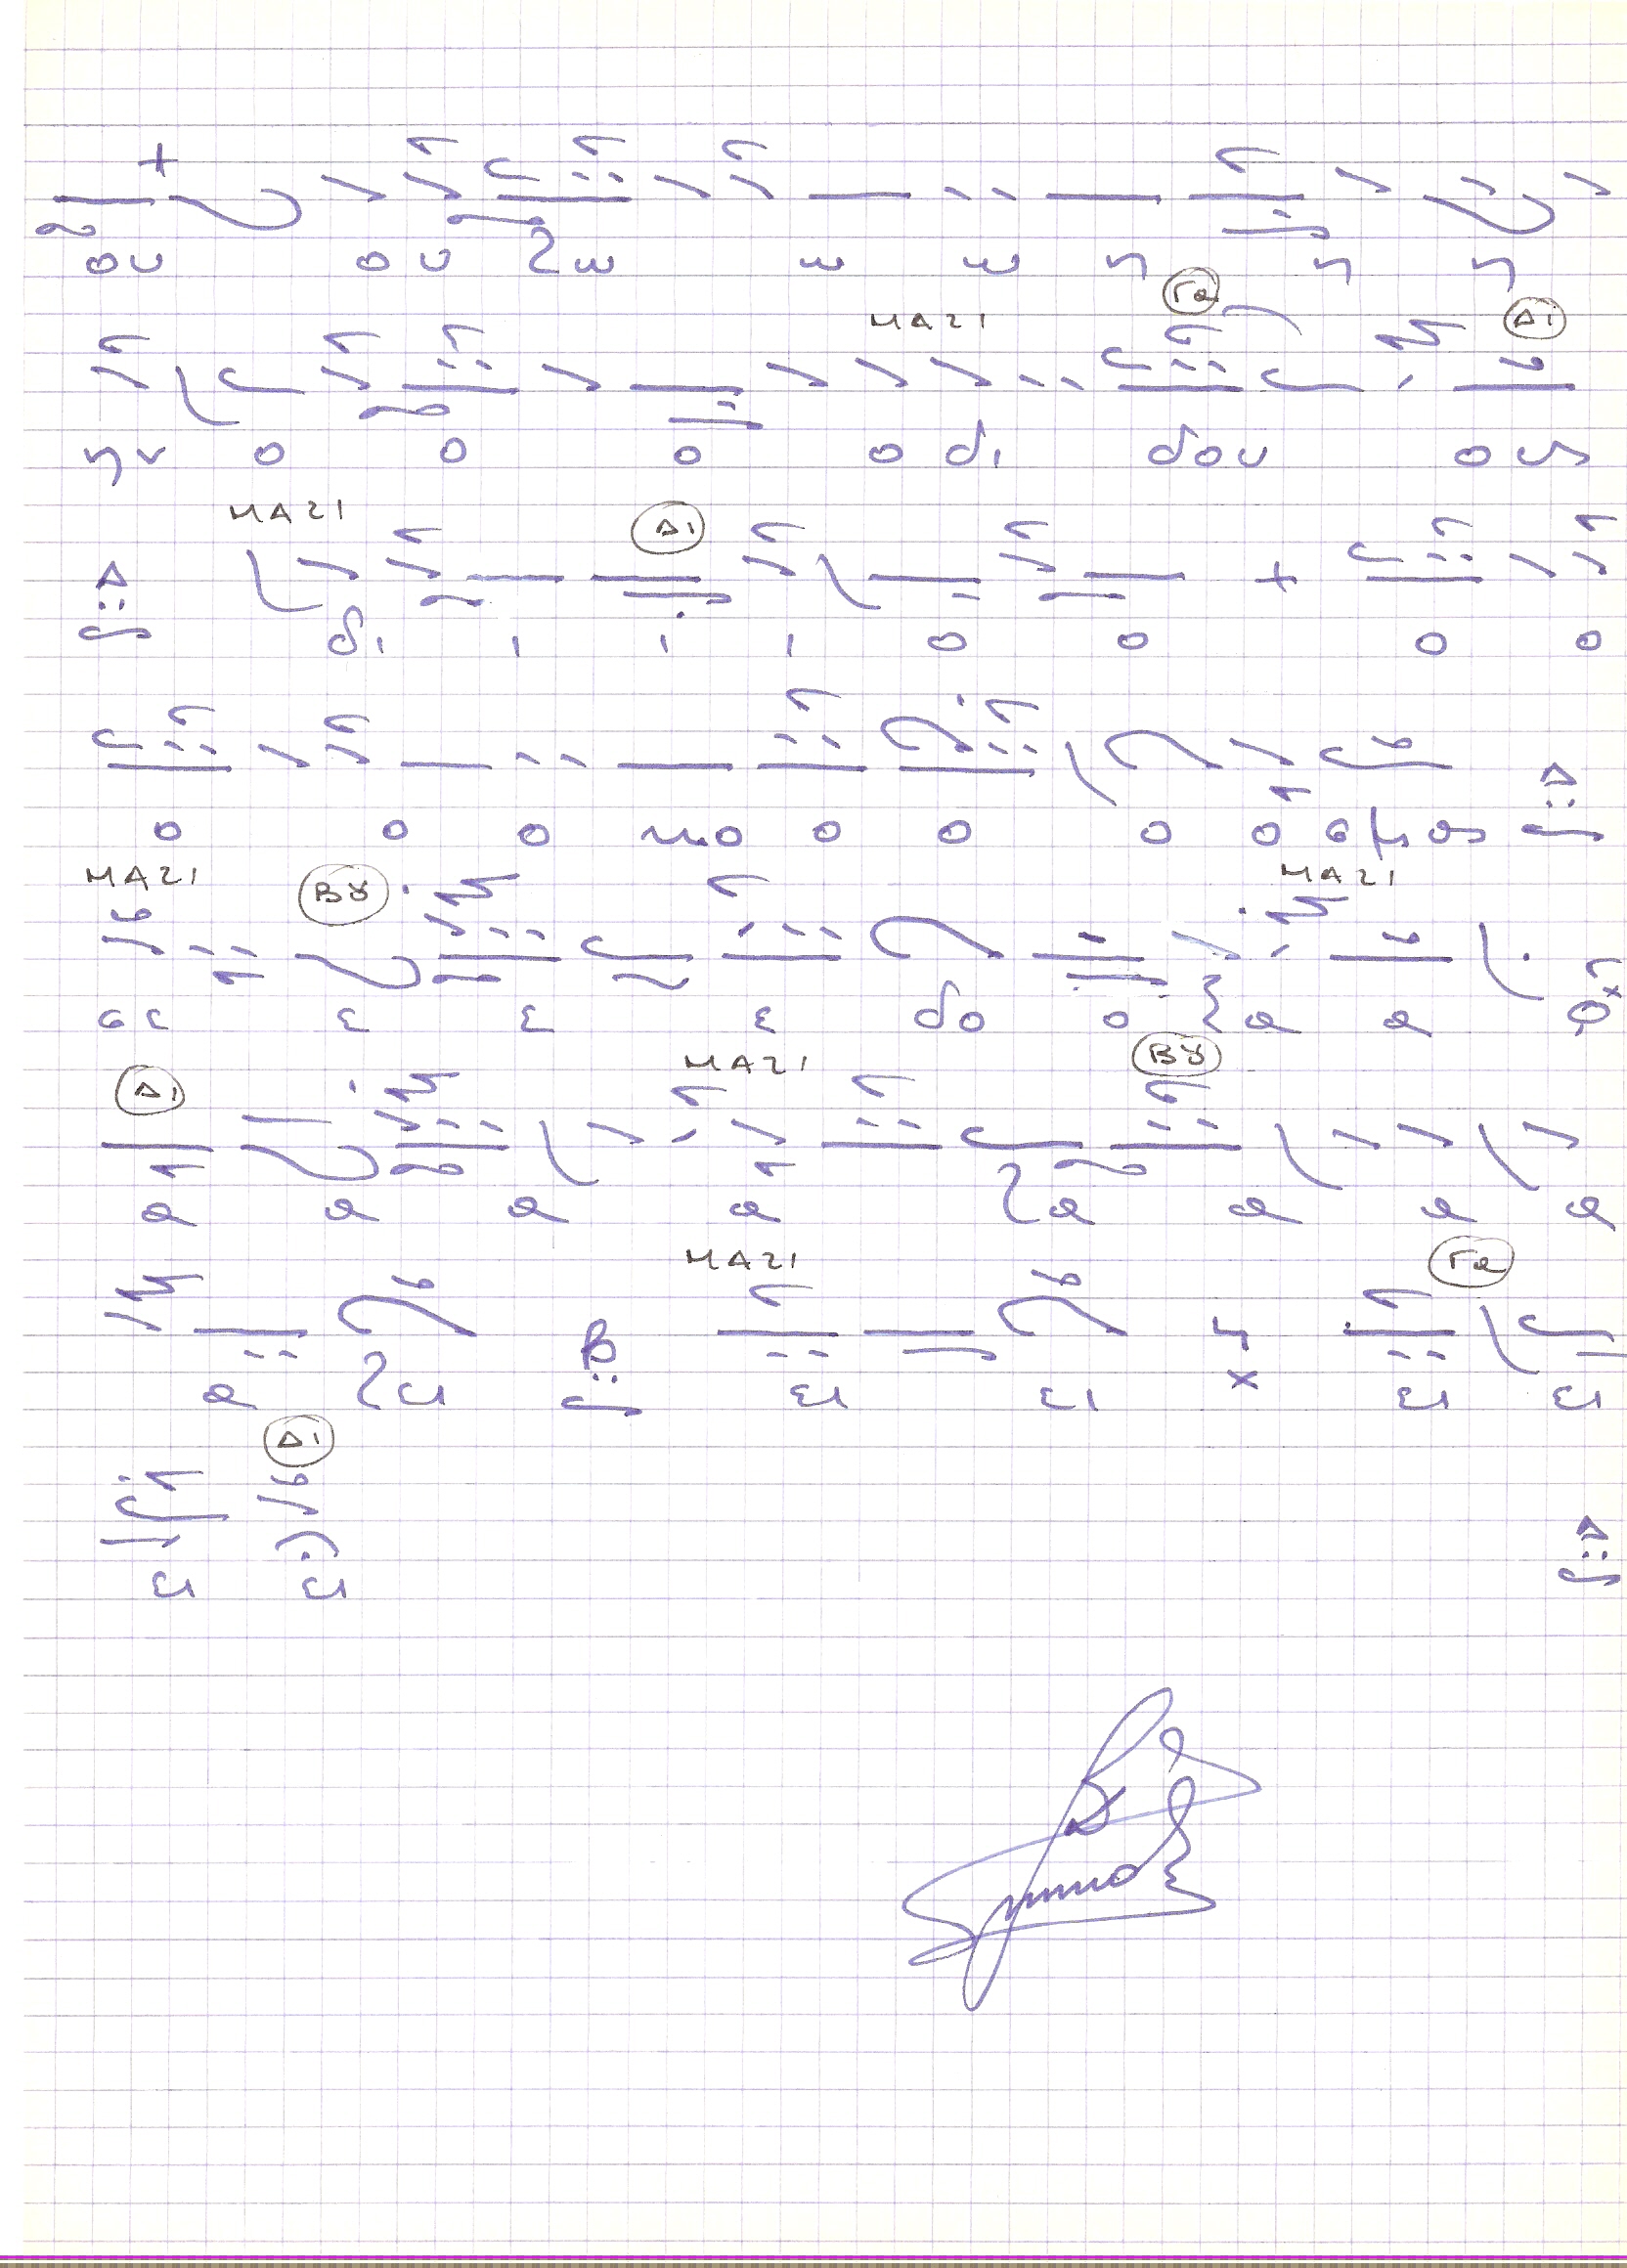 ου ου ζω ω ω η η η
ΜΑΖΙ Γα Δι
ην ο ο ο ο δι δου ους
ΜΑΖΙ Δι
Δ δι ι ι ι ο ο ο ο
ο ο ο κο ο ο ο ο σμος Δ
ΜΑΖΙ Βου ΜΑΖΙ
σε ε ε ε δο ο ξα α
Δι ΜΑΖΙ Βου
α α α α ζα α α α
ΜΑΖΙ Γα
α ζει β ει ει ει ει
Δι
ει ει Δ